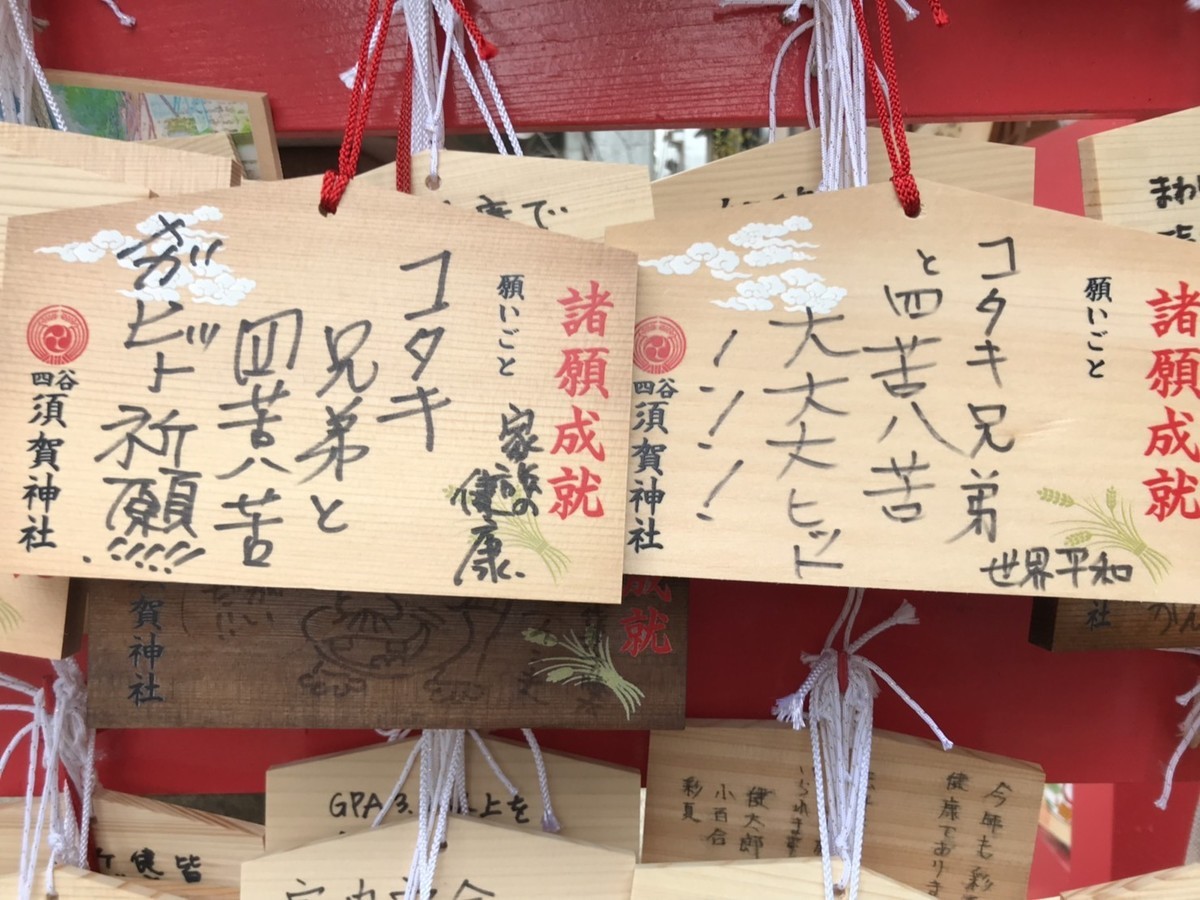 諸願成就
願いごと
コタキ
兄弟と
四苦八苦
メガ
ビット
祈願!!!!!
家族の
健康.
四谷
須賀神社
諸願成就
願いごと
コタキ兄弟
と四苦八苦
大大大ヒット
世界平和
四谷
須賀神社
康で
まわ
成就
賀神社
社
GPA3.
上を
健皆
今年も彩
健康であります
健太郎
小百合
彩夏